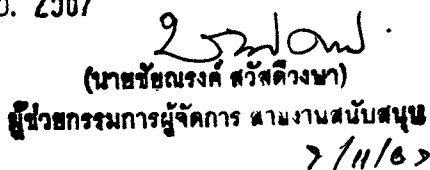 . 2567
(นายชัยณรงค์ สวัสดีวงษา)
ผู้ช่วยกรรมการผู้จัดการ สายงานสนับสนุน
7/11/67